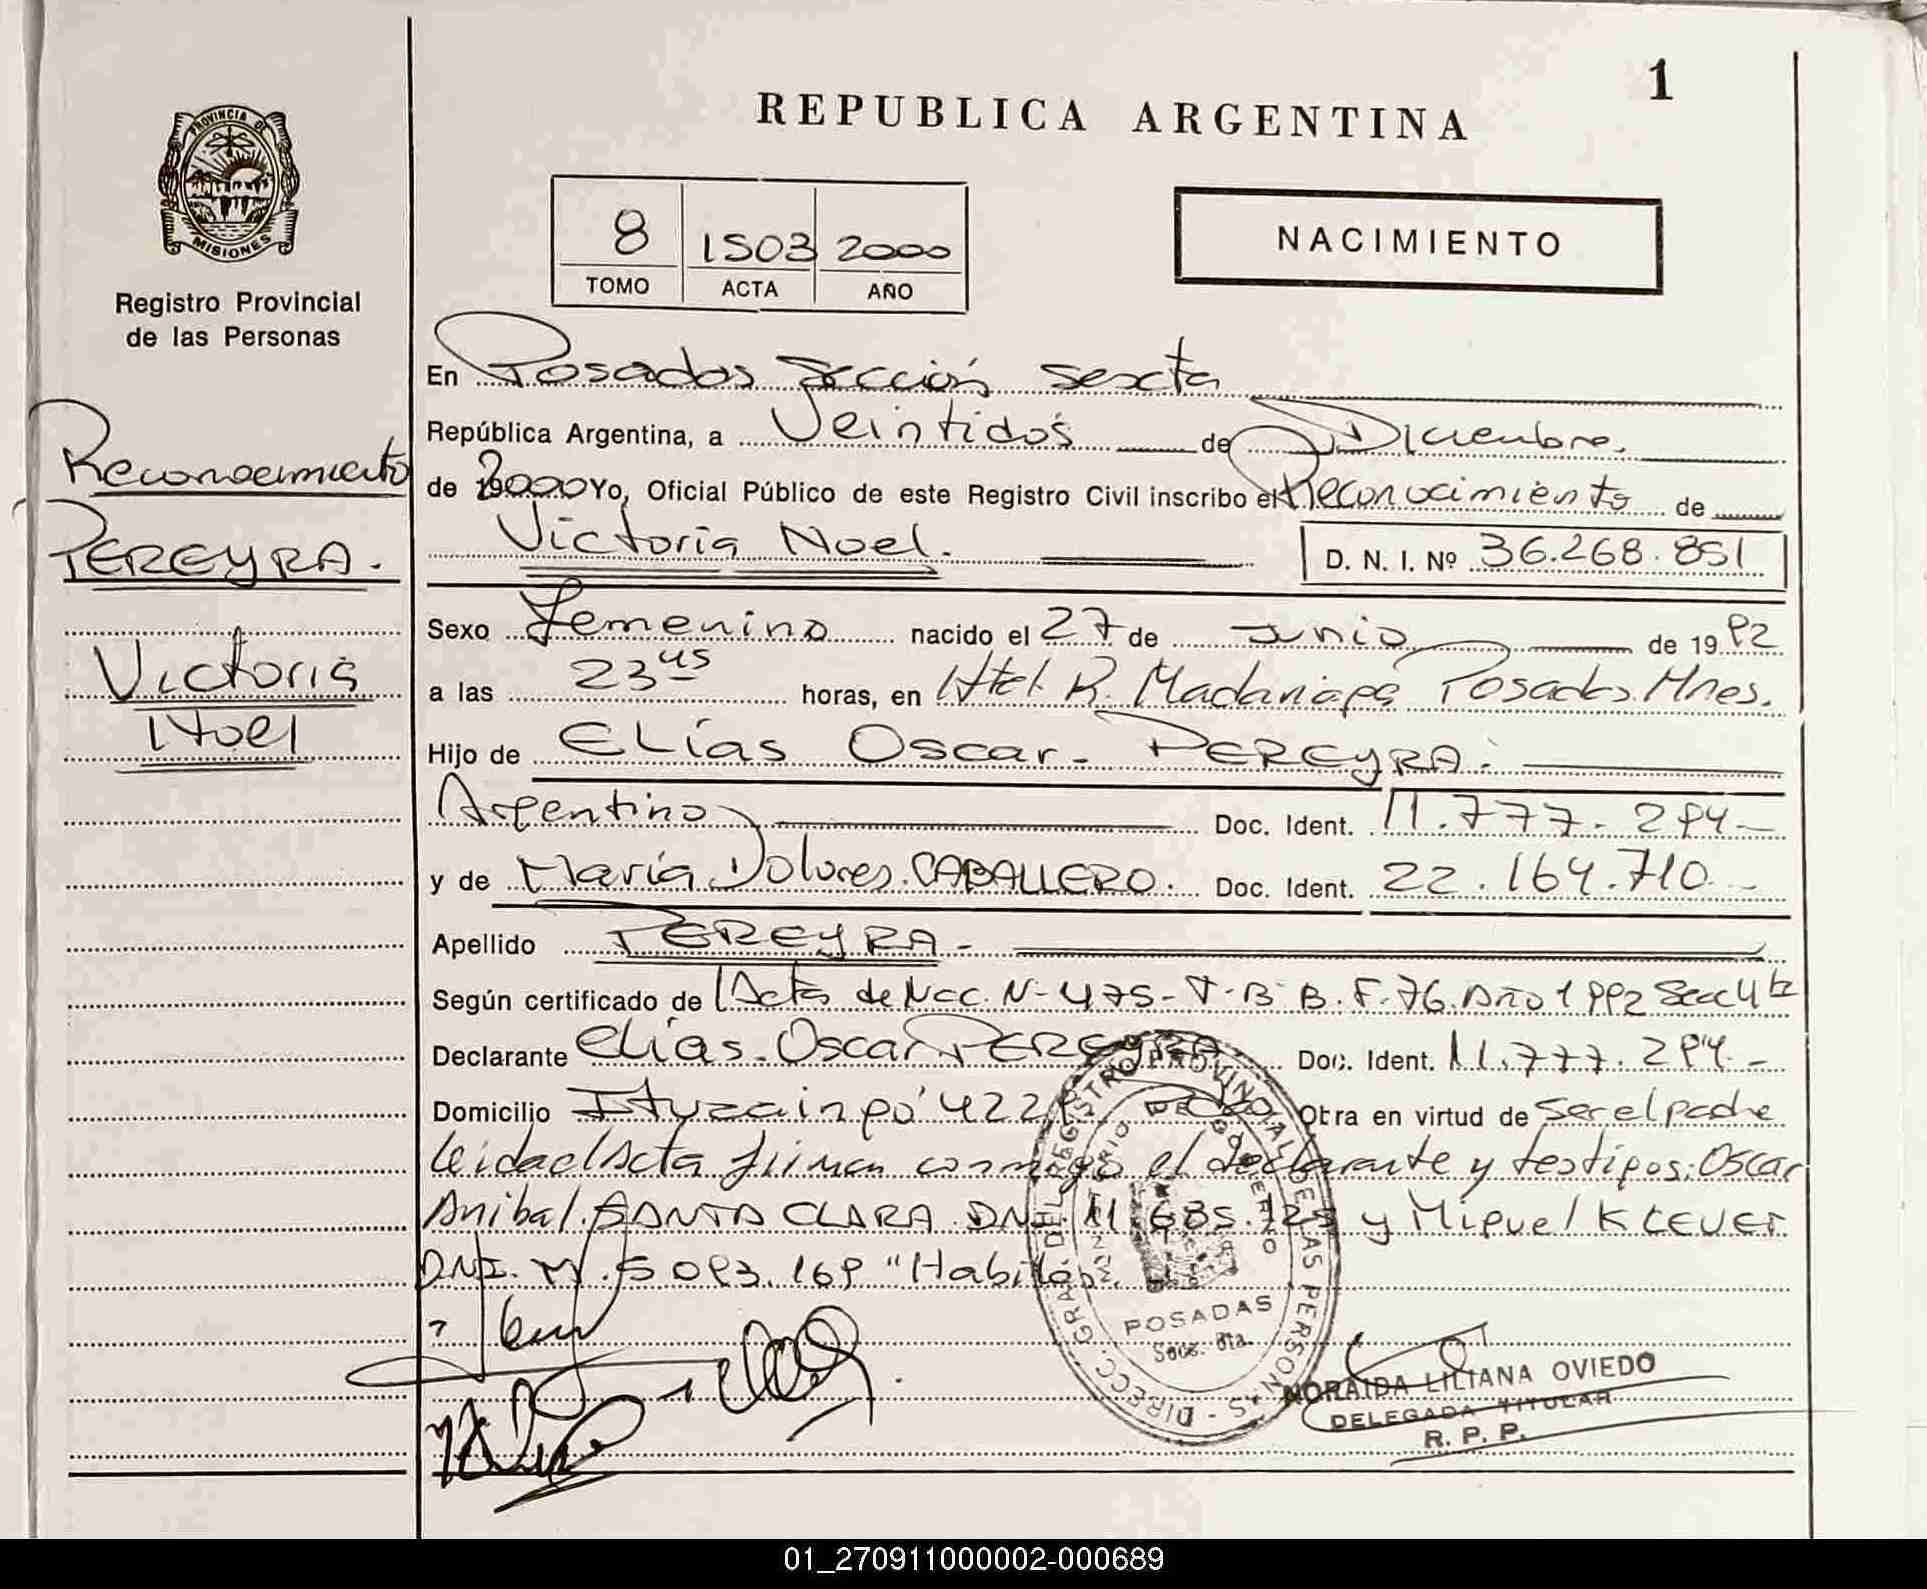 1
REPUBLICA ARGENTINA
PROVINCIA DE
MISIONES
Registro Provincial
de las Personas
8 1503 2000
TOMO ACTA AÑO
NACIMIENTO
Reconocimiento
PEREYRA.
Victoria
Noel
En Posadas Sección sexta
República Argentina, a Veintidós de Diciembre.
de 2000 Yo, Oficial Público de este Registro Civil inscribo el Reconocimiento de
Victoria Noel. D. N. I. Nº 36.268.851
Sexo Femenino nacido el 27 de Junio de 1992
a las 23 45 horas, en Htal. R. Madariaga Posadas Mnes.
Hijo de Elías Oscar- PEREYRA.
Argentino Doc. Ident. 11.777.294-
y de María Dolores CABALLERO. Doc. Ident. 22.164.710-
Apellido PEREYRA-
Según certificado de Acta de Nac. N- 475- T- B- B. F. 76. Año 1992 Secc 4ta
Declarante Elías Oscar PEREYRA Doc. Ident. 11.777.294.-
Domicilio Ituzaingó 422 Otra en virtud de ser el padre
leida el Acta firman conmigo el declarante y testigos: Oscar
Anibal SANTA CLARA DNI. 11.685. y Miguel KLEVET
DNI. M. 5 093.169 "Habiló".
DIRECC. GRAL. DEL REGISTRO PROVINCIAL DE LAS PERSONAS -
MINISTERIO DE GOBIERNO
POSADAS
Secc. 6ta.
NORAIDA LILIANA OVIEDO
DELEGADA TITULAR
R. P. P.
01_270911000002-000689